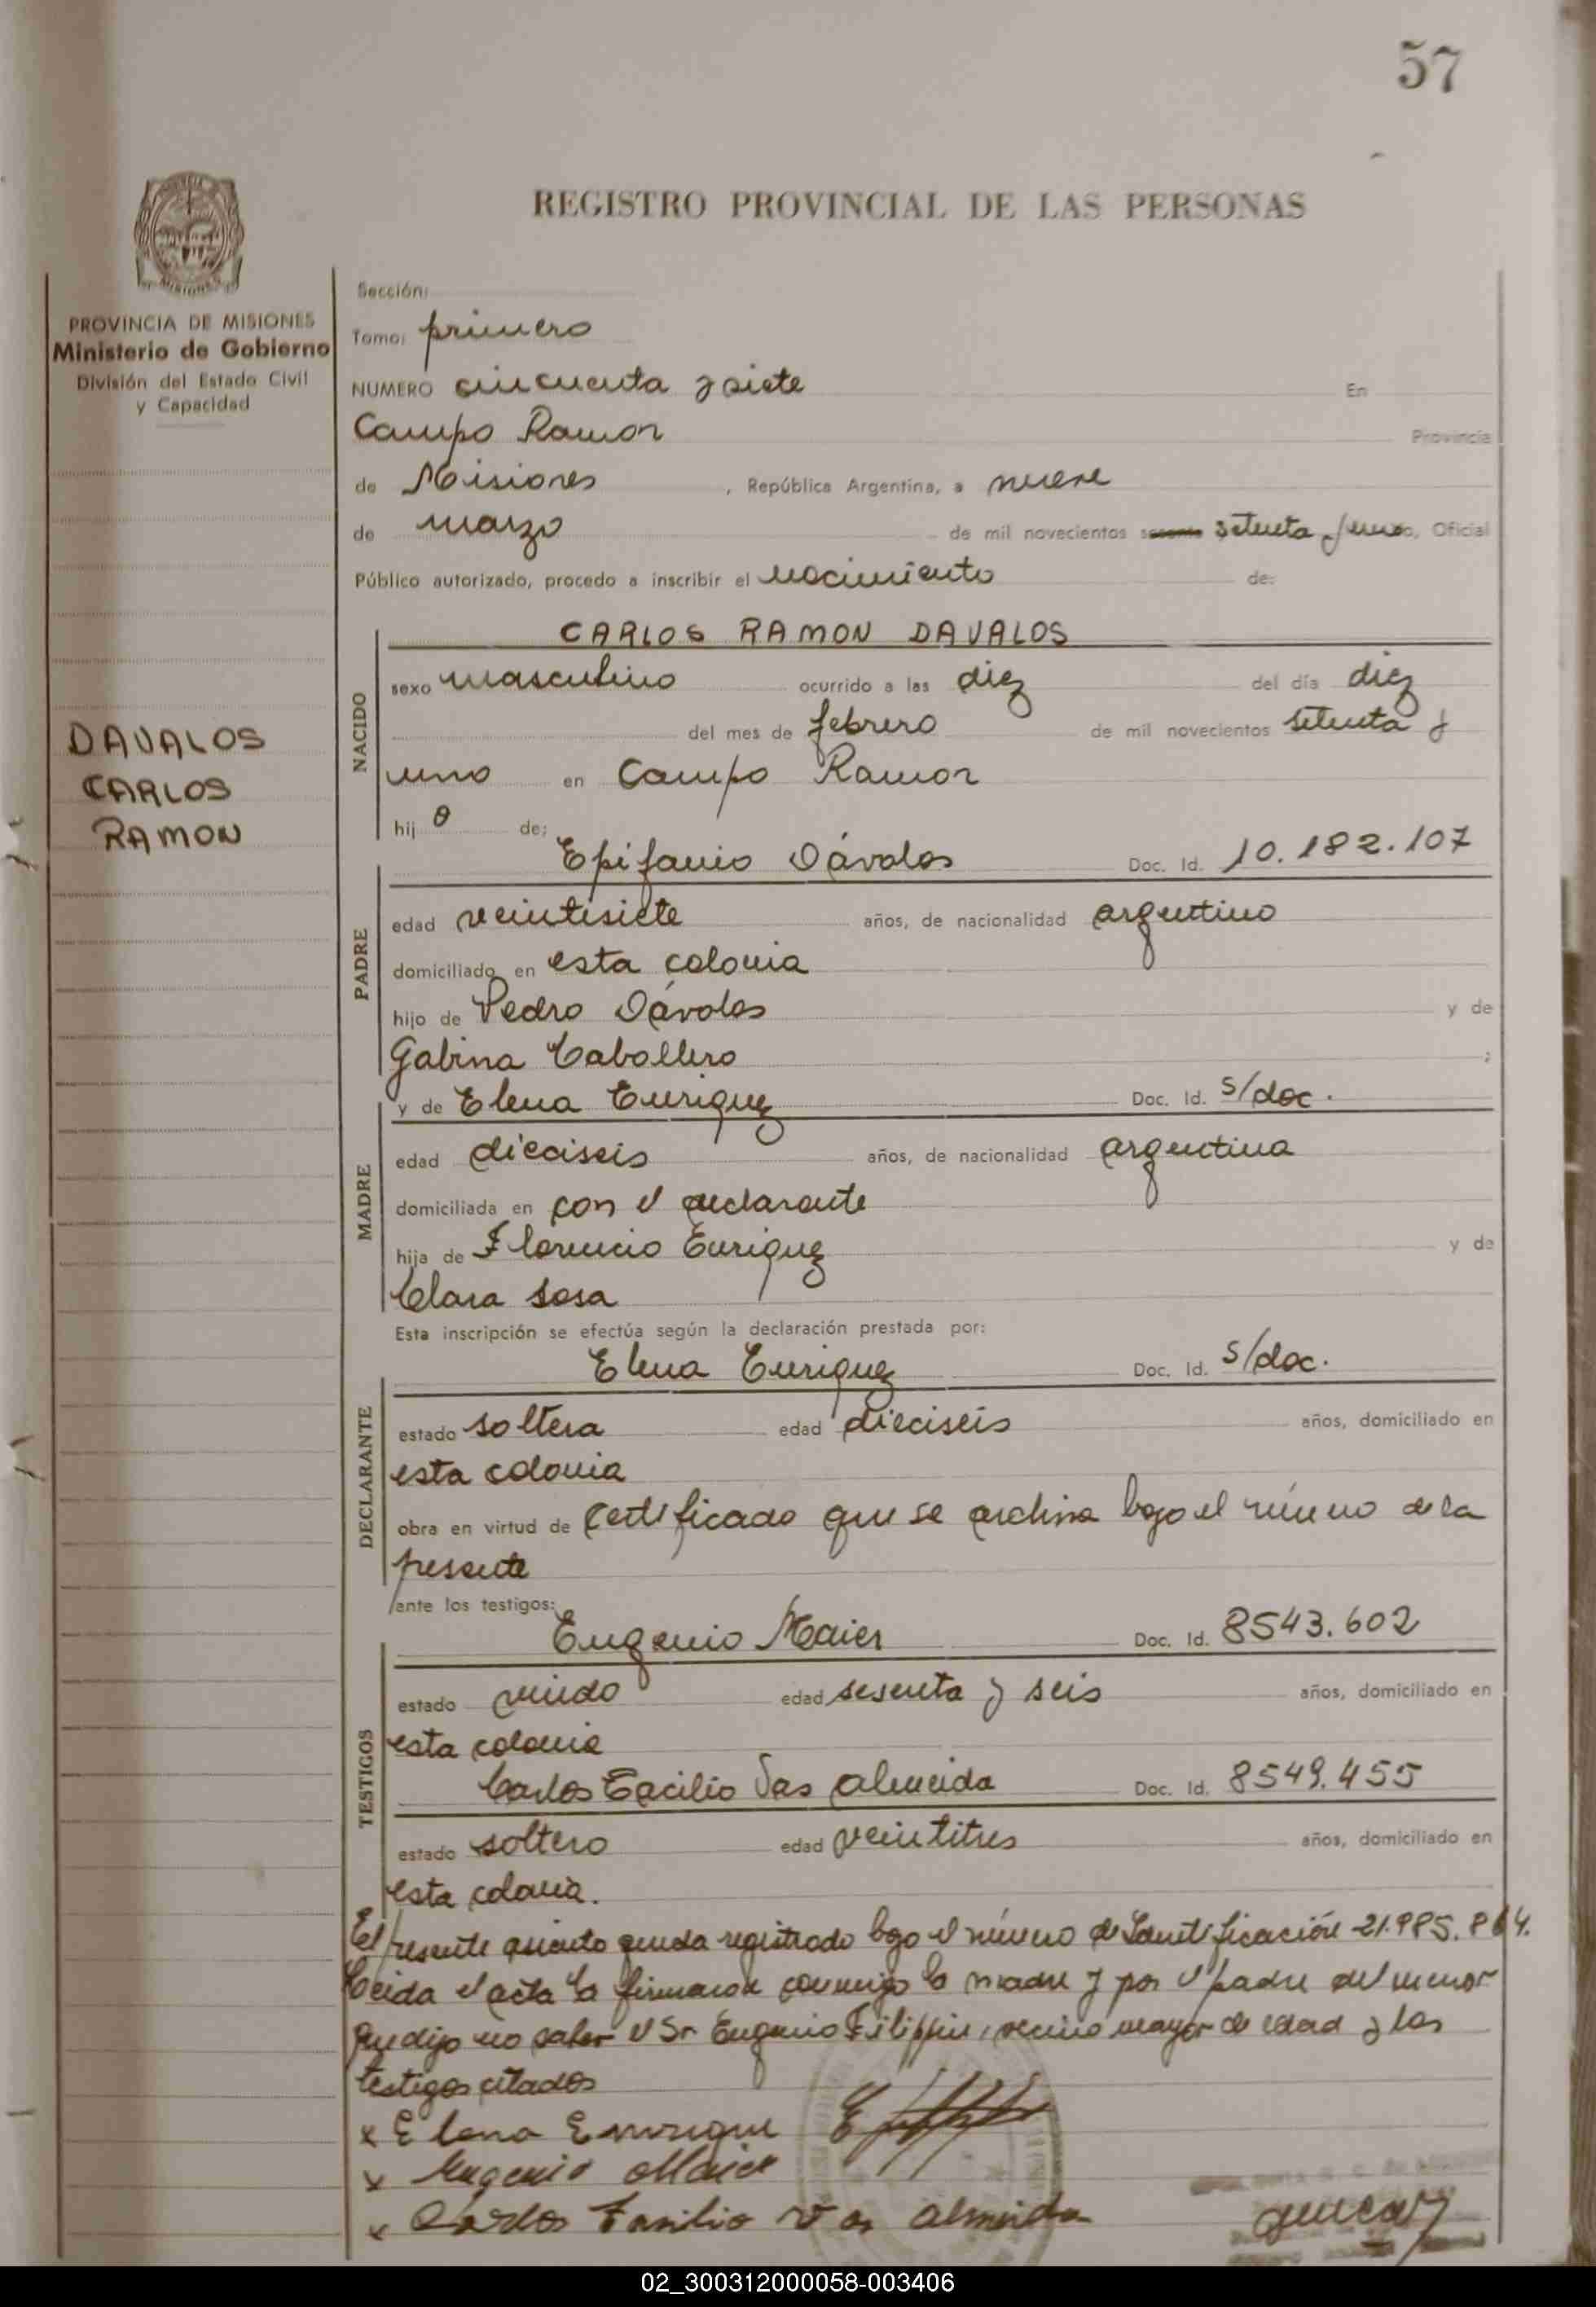 57
REGISTRO PROVINCIAL DE LAS PERSONAS
PROVINCIA DE MISIONES
Ministerio de Gobierno
División del Estado Civil
y Capacidad
DAVALOS
CARLOS
RAMON
Sección:
Tomo: primero
NUMERO cincuenta y siete En
Campo Ramon Provincia
de Misiones , República Argentina, a nueve
de marzo de mil novecientos sesenta setenta y uno, Oficial
Público autorizado, procedo a inscribir el nacimiento de:
CARLOS RAMON DAVALOS
NACIDO
sexo masculino ocurrido a las diez del día diez
del mes de febrero de mil novecientos setenta y
uno en Campo Ramon
hij o de:
Epifanio Dávalos Doc. Id. 10.182.107
PADRE
edad veintisiete años, de nacionalidad argentino
domiciliado en esta colonia
hijo de Pedro Dávalos y de
Gabina Caballero ;
y de Elena Enriquez Doc. Id. s/doc.
MADRE
edad dieciseis años, de nacionalidad argentina
domiciliada en con el declarante
hija de Florencio Enriquez y de
Clara Sosa
Esta inscripción se efectúa según la declaración prestada por:
Elena Enriquez Doc. Id. s/doc.
DECLARANTE
estado soltera edad dieciseis años, domiciliado en
esta colonia
obra en virtud de certificado que se archiva bajo el número de la
presente
ante los testigos:
Eugenio Maier Doc. Id. 8543.602
TESTIGOS
estado viudo edad sesenta y seis años, domiciliado en
esta colonia
Carlos Vas Almeida Doc. Id. 8549.455
estado soltero edad veintitres años, domiciliado en
esta colonia.
El presente asiento queda registrado bajo el número de Identificación 21.985.864.
Leida el acta la firmaron conmigo la madre y por el padre del menor
que dijo no saber el Sr Eugenio Filippin, vecino mayor de edad y los
testigos citados
x Elena Enrrique
x Eugenio Maier
x Carlos Vas Almeida
02_300312000058-003406